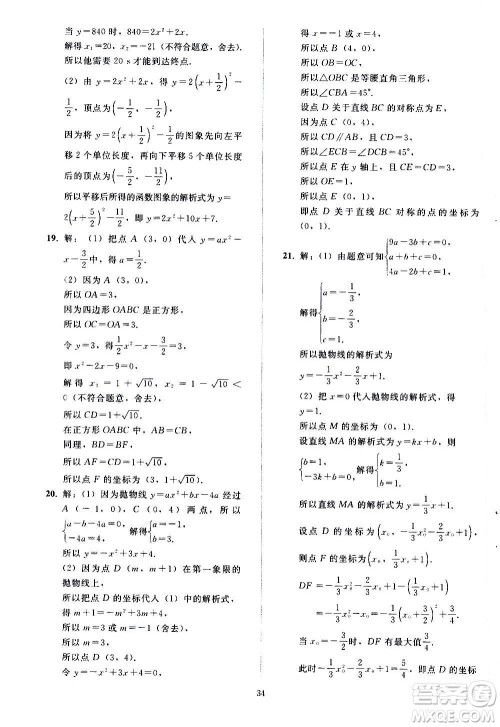 当 y=840 时，840=2x²+2x.
解得 x₁=20，x₂=-21（不符合题意，舍去）.
所以他需要 20 s 才能到达终点.
（2）由 y=2x²+2x，可得 y=2(x+1/2)²
-1/2，顶点为(-1/2，-1/2).
因为将 y=2(x+1/2)²-1/2 的图象先向左平
移 2 个单位长度，再向下平移 5 个单位长度
后的顶点为(-5/2，-11/2)，
所以平移后所得的函数图象的解析式为 y=
2(x+5/2)²-11/2，即 y=2x²+10x+7.
19. 解：（1）把点 A（3，0）代入 y=ax²-x-
3/2，解得 a=1/2.
（2）因为点 A 的坐标为（3，0），
所以 OA=3.
因为四边形 OABC 是正方形，
所以 OC=OA=3.
令 y=3，得 1/2x²-x-3/2=3，
即 x²-2x-9=0.
解得 x₁=1+√10，x₂=1-√10<
0（不符合题意，舍去）.
所以 CD=1+√10.
在正方形 OABC 中，AB=CB.
同理，BD=BF.
所以 AF=CD=1+√10.
所以点 F 的坐标为（3，1+√10）.
20. 解：（1）因为抛物线 y=ax²+bx-4a 经过
A（-1，0）、C（0，4）两点，所以
{a-b-4a=0，-4a=4，解得{a=-1，b=3.
所以抛物线的解析式为 y=-x²+3x+4.
（2）因为点 D（m，m+1）在第一象限的
抛物线上，
所以把点 D 的坐标代入（1）中的解析式，
得 m+1=-m²+3m+4，即 m²-2m-3=0.
所以 m=3 或 m=-1（舍去）.
所以 m=3.
所以点 D（3，4）.
令 y=-x²+3x+4=0，
得 x=-1 或 x=4，
所以点 B（4，0）.
所以 OB=OC.
所以△OBC 是等腰直角三角形.
所以∠CBA=45°.
设点 D 关于直线 BC 的对称点为 E.
因为点 C（0，4），
所以 CD∥AB，且 CD=3.
所以∠ECB=∠DCB=45°.
所以点 E 在 y 轴上，且 CE=CD=3.
所以 OE=1.
所以点 E（0，1）.
即点 D 关于直线 BC 对称的点的坐标为
（0，1）.
21. 解：（1）由题意可知{9a-3b+c=0，a+b+c=0，c=-1.
解得{a=1/3，b=2/3，c=-1.
所以抛物线的解析式为
y=1/3x²+2/3x-1.
（2）把 x=0 代入抛物线的解析式，得 y=-1.
所以点 M 的坐标为（0，-1）.
设直线 MA 的解析式为 y=kx+b，则
{b=-1，-3k+b=0，解得{k=-1/3，b=-1.
所以直线 MA 的解析式为 y=-1/3x-1.
设点 D 的坐标为(x₀，1/3x₀²+2/3x₀-1)，
则点 F 的坐标为(x₀，-1/3x₀-1).
DF=-1/3x₀-1-(1/3x₀²+2/3x₀-1)
=-1/3x₀²-x₀=-1/3(x₀+3/2)²+3/4.
当 x₀=-3/2 时，DF 有最大值 3/4.
此时 1/3x₀²+2/3x₀-1=-5/4，即点 D 的坐
34